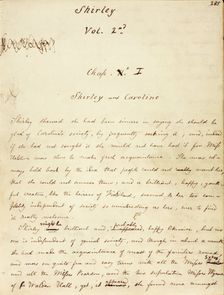 285
Shirley
Vol. 2nd
Chap. I
Shirley and Caroline
Shirley showed she had been sincere in saying she should be
glad of Caroline's society, by frequently seeking it; and, indeed
if she had not sought it she would not have had it for Miss
Helstone was slow to make fresh acquaintance. She was always
held back by the idea that people could not want her
that she could not amuse them; and a brilliant, happy, youth-
ful creature like the heiress of Fieldhead, seemed to her too com-
pletely independent of society so uninteresting as hers, ever to
find it really welcome.
Shirley might be brilliant and probably happy likewise, but no
one is independent of genial society; and though in about a month
she had made the acquaintance of most of the families round
and was on quite free and easy terms with all the Misses Sykes
and all the Misses Pearson, and the two superlative Misses Wynne
of Walden Hall, yet, it